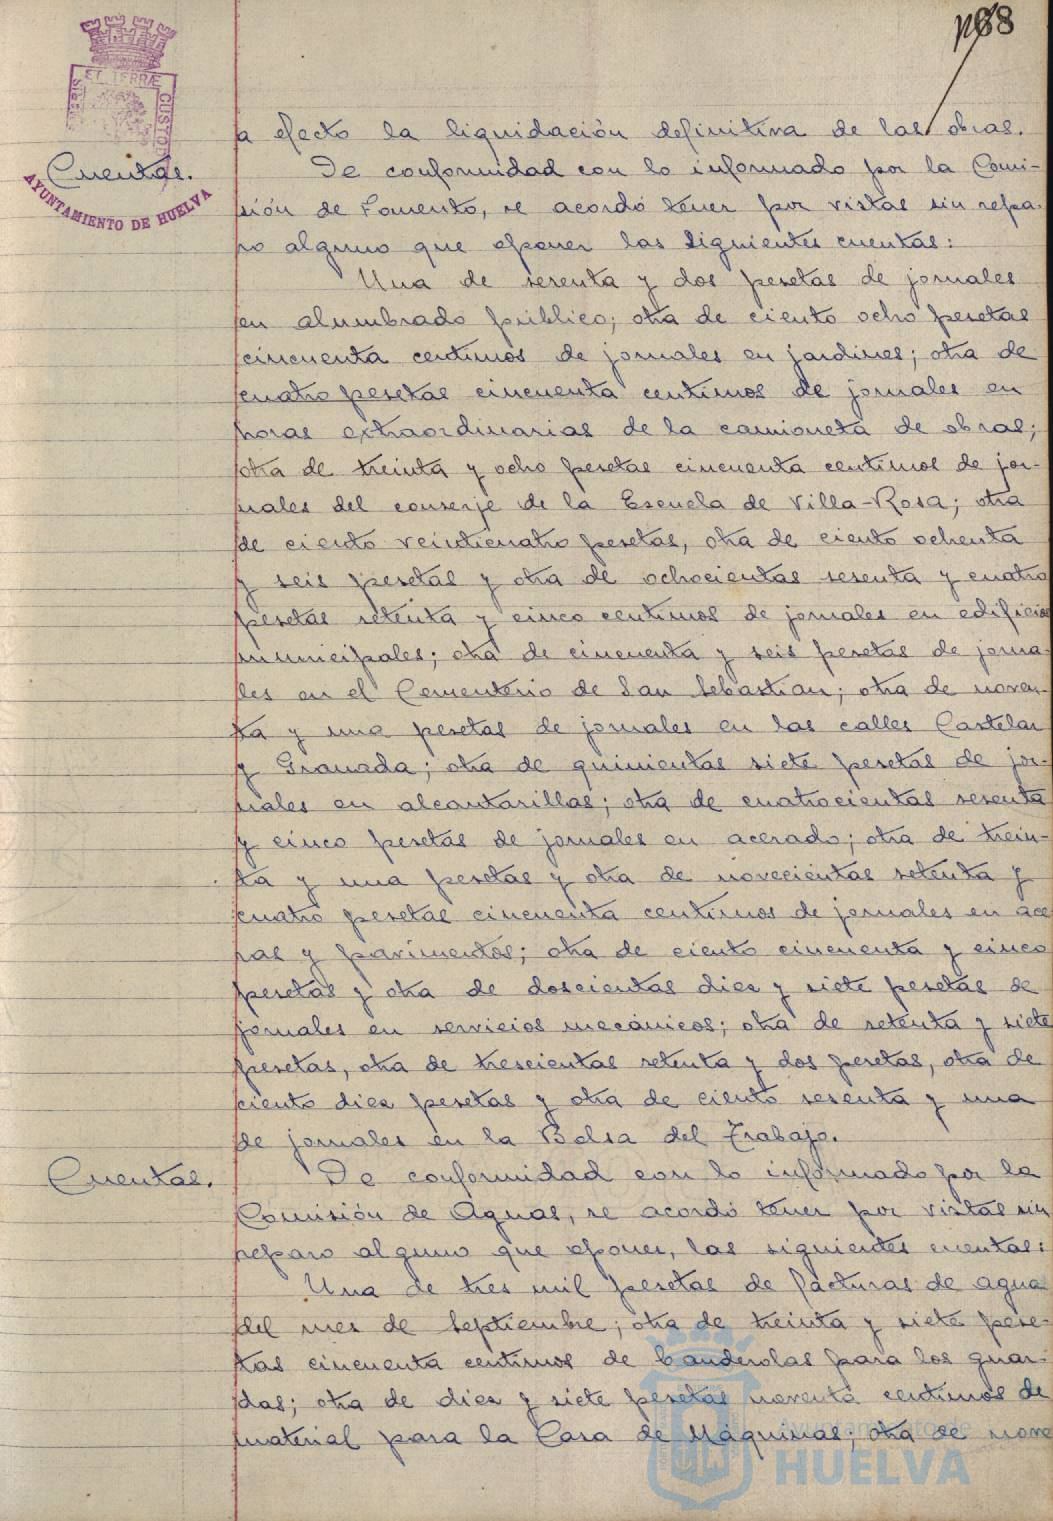 188
ORBIS ET TERRÆ CUSTODIA
AYUNTAMIENTO DE HUELVA
a efecto la liquidación definitiva de las obras.
Cuentas.
De conformidad con lo informado por la Comi-
sión de Fomento, se acordó tener por vistas sin repa-
ro alguno que oponer las siguientes cuentas:
Una de sesenta y dos pesetas de jornales
en alumbrado público; otra de ciento ocho pesetas
cincuenta centimos de jornales en jardines; otra de
cuatro pesetas cincuenta centimos de jornales en
horas extraordinarias de la camioneta de obras;
otra de treinta y ocho pesetas cincuenta centimos de jor-
nales del conserje de la Escuela de Villa-Rosa; otra
de ciento veinticuatro pesetas, otra de ciento ochenta
y seis pesetas y otra de ochocientas sesenta y cuatro
pesetas setenta y cinco centimos de jornales en edificios
municipales; otra de cincuenta y seis pesetas de jorna-
les en el Cementerio de San Sebastian; otra de noven-
ta y una pesetas de jornales en las calles Castelar
y Granada; otra de quinientas siete pesetas de jor-
nales en alcantarillas; otra de cuatrocientas sesenta
y cinco pesetas de jornales en acerado; otra de trein-
ta y una pesetas y otra de novecientas setenta y
cuatro pesetas cincuenta centimos de jornales en ace
ras y pavimentos; otra de ciento cincuenta y cinco
pesetas y otra de doscientas diez y siete pesetas de
jornales en servicios mecánicos; otra de setenta y siete
pesetas, otra de trescientas setenta y dos pesetas, otra de
ciento diez pesetas y otra de ciento sesenta y una
de jornales en la Bolsa del Trabajo.
Cuentas.
De conformidad con lo informado por la
Comisión de Aguas, se acordó tener por vistas sin
reparo alguno que oponer, las siguientes cuentas:
Una de tres mil pesetas de facturas de agua
del mes de Septiembre; otra de treinta y siete pese-
tas cincuenta centimos de banderolas para los guar-
das; otra de diez y siete pesetas noventa centimos de
material para la Casa de Máquinas; otra de nove
Ayuntamiento de
HUELVA